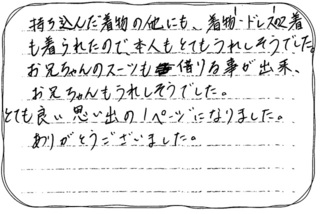 持ち込んだ着物の他にも、着物・ドレス2着
も着られたので本人もとてもうれしそうでした。
お兄ちゃんのスーツも借りる事が出来、
お兄ちゃんもうれしそうでした。
とても良い思い出の1ページになりました。
ありがとうございました。